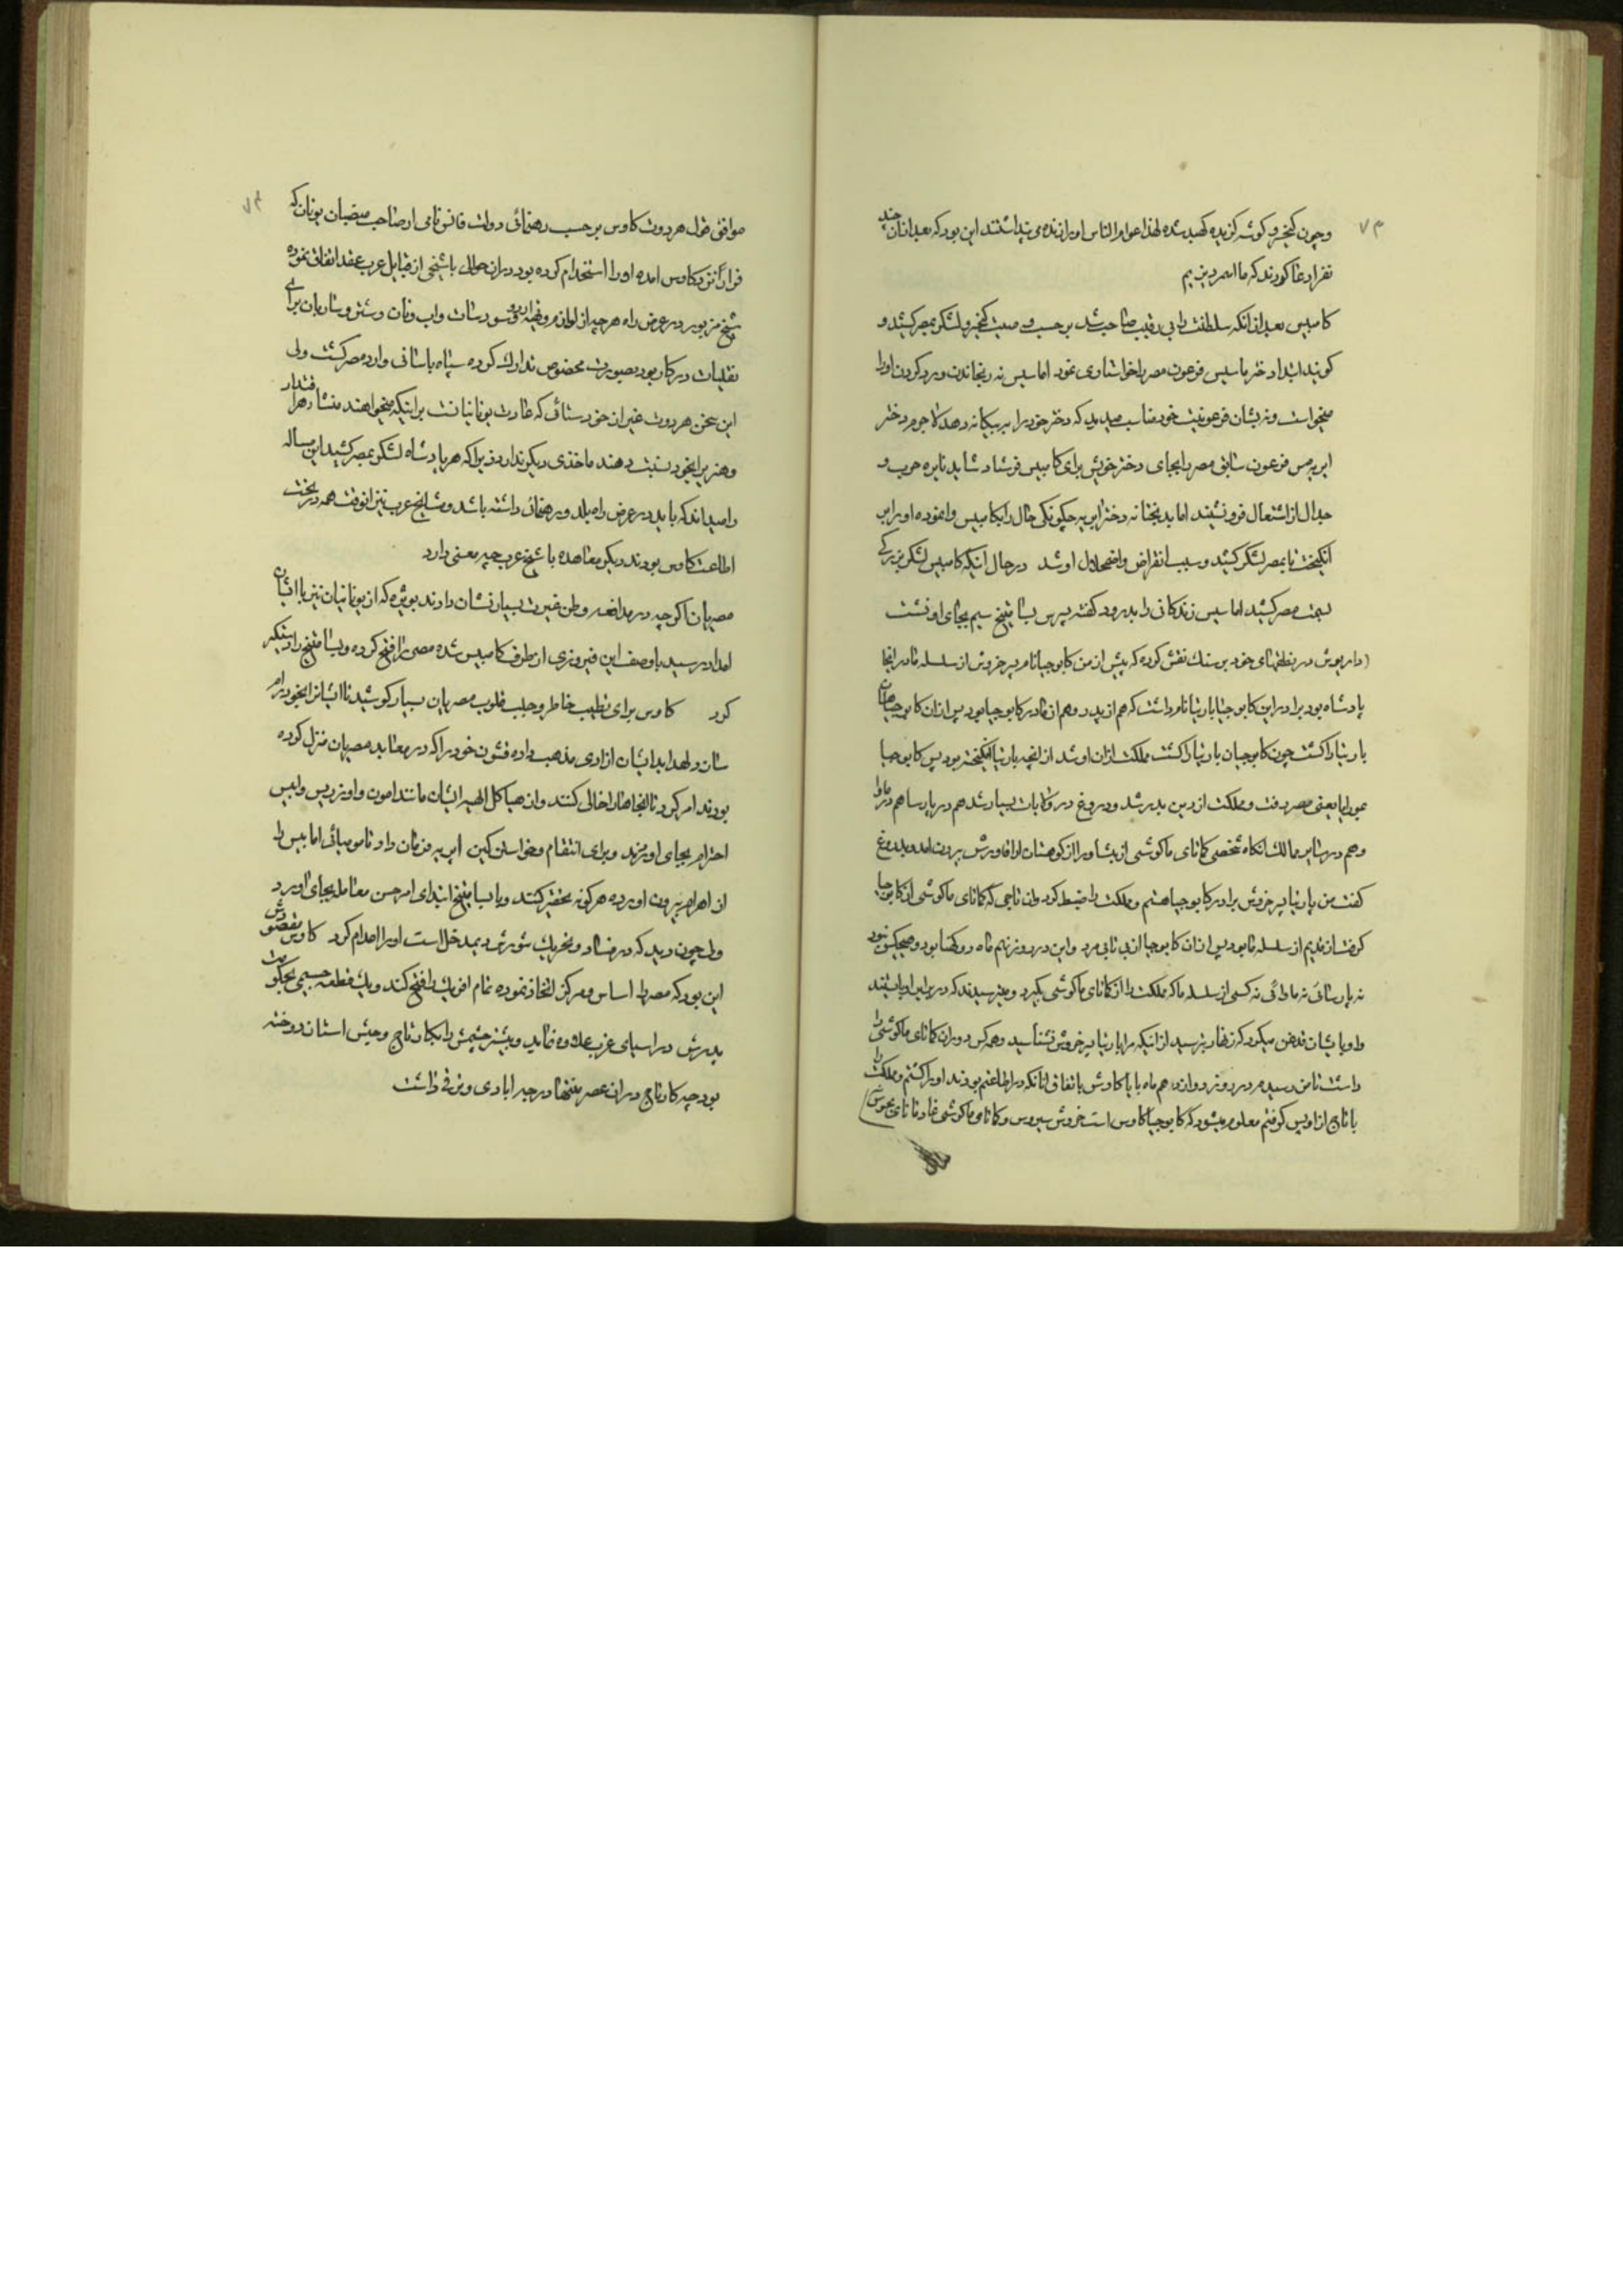 ۷۳
وچون کیخسرو کوشه کزیده کهبد شده لهذا عوام الناس او را زنده می پنداشتند این بود که بعد از ان چند
نفر ادعا کردند که ما اسمردیزیم
کامبیس بعد از انکه سلطنت را بی رقیب صاحب شد بر حسب وصیت کیخسرو لشکر بمصر کشید و
کویند ابتدا دختر اماسیس فرعون مصر را خواستاری نمود اماسیس نه رنجاندن و رد کردن او را
میخواست و نه بشان فرعونیت خود مناسب میدید که دختر خود را به بیکانه دهد لاجرم دختر
اپریس فرعون سابق مصر را بجای دختر خویش برای کامبیس فرستاد شاید نایره حرب و
جدال از اشتعال فرو نشیند اما بدبختانه دختر اپریه چکونکی حال را بکامبیس وانموده او را بر
انکیخت تا بمصر لشکر کشید و سبب انقراض و اضمحلال او شد در حال اینکه کامبیس لشکر بزرکی
بسمت مصر کشید اماسیس زندکانی را بدرود کفته پسرش پسامتیخ سیم بجای او نشست
(داریوش در نطقهای خود بر سنك نقش کرده که پیش از من کابوجیا نام پسر خروش از سلسله ما در اینجا
پادشاه بود برادر این کابوجیا بارتیا نام داشت که هم از پدر و هم از مادر کابوجیا بود پس از ان کابوجیا همان
بارتیا را کشت چون کابوجیا ان بارتیا را کشت مملکت ازان او شد از انچه بارتیا انکیخته بود پس کابوجیا
بمودرایا یعنی مصر رفت و مملکت از دین بدر شد و دروغ در ولایات بسیار شد هم در پارسا هم در مادا
و هم در سایر ممالك انکاه شخصی کاماتای ماکوشی از پیشاورا از کوهستان اراقادریش بیرون امد و بدروغ
کفت من بارتیا پسر خروش برادر کابوجیا هستم و مملکت را ضبط کرد وان تاجی که کاماتای ماکوشی از کابوجیا
کرفت از قدیم از سلسله ما بود پس از ان کابوجیا از بی تابی مرد و این در روز نهم ماه
نه پارسائی نه مادائی نه کسی از سلسله ما که مملکت را از کاماتای ماکوشی بکیرد و میترسیدند که در برابر او بایستند
و او بایشان قدغن میکرد که زنهار بترسید از اینکه مرا بارتیا پسر خروش نشناسید و همه کس دوران کاماتای ماکوشی را
داشت تا من رسیدم در روز دهم ماه باکایادیش باتفاق انانکه در اطاعتم بودند او را کشتم و مملکت را
با تاج از او پس کرفتم معلوم میشود که کابوجیا کاوس است خروش سیروس و کاماتای ماکوشی
۷۴
موافق قول هرودت کاوس بر حسب رهنمائی دولت فانس نامی از صاحب منصبان یونان که
فرارا نزد کاوس امده او را استخدام کرده بود دران حوالی با شیخی از قبایل عرب عقد اتفاق نموده
شیخ مزبور در عرض راه هر چه از لوازم و ذخیره اردو و سورسات واب ونان و شتر و ساربان برای
نقلیات در کار بود بصورت مخصوص تدارك کرده سپاه باسانی وارد مصر کشت ولی
این سخن هرودت غیر از خودستائی که عادت یونانیانست بر اینکه میخواهند منشأ هر اقتدار
و هنر را بخود نسبت دهند ماخذی دیکر ندارد زیرا که هر پادشاه لشکر بمصر کشید این مساله
را میداند که باید در عرض راه بلد و رهنمائی داشته باشد و مشایخ عرب نیز انوقت همه در تحت
اطاعت کاوس بودند دیکر معاهده با شیخ عرب چه معنی دارد
مصریان اکرچه در مدافعه وطن غیرت بسیار نشان دادند بویژه که از یونانیان نیز با ایشان
امداد رسید با وصف این فیروزی از طرف کامبیس شده مصر را فتح کرده و پسامتیخ را دستکیر
کرد کاوس برای تطییب خاطر و جلب قلوب مصریان بسیار کوشید تا ایشانرا بخود رام
سازد لهذا بدایشان ازادی مذهب داده قشون خود را که در معابد مصریان منزل کرده
بودند امر کرد تا انجاها را خالی کنند وان هیاکل الهیه ایشان مانند امون و اوزریس و ابیس
احترام بجای اورند و برای انتقام و خواستن کین اپریه فرمان داد تا مومیائی اماسیس را
از اهرام بیرون اورده هرکونه تحقیر کنند و با پسامتیخ ابتدای امر حسن معامله بجای اورد
ولی چون دید که در فساد و تحریك شورش دیمدخل است او را اعدام کرد کاوس مقصودش
این بود که مصر را اساس و مرکز اتخاذ نموده تمام افریك را فتح کند و یك قطعه جسیمی بحکومت
پدرش در اسیای غرب علاوه نماید و بیشتر چشمش را بکارتاج و حبش استان دوخته
بود چه کارتاج دران عصر منتها درجه ابادی و ترقی داشت